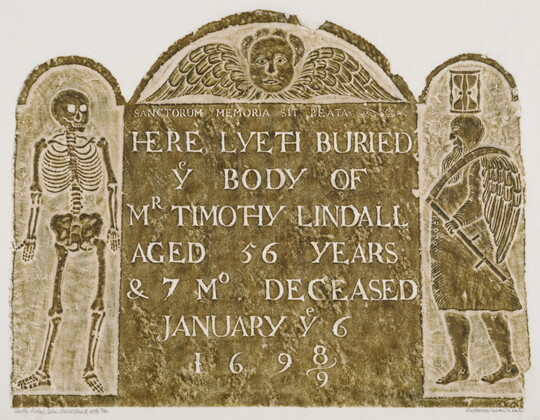 SANCTORUM MEMORIA SIT BEATA
HERE LYETH BURIED
yͤ BODY OF
Mᴿ TIMOTHY LINDALL
AGED 56 YEARS
& 7 Mᵒ DECEASED
JANUARY yͤ 6
1 6 9 8/9